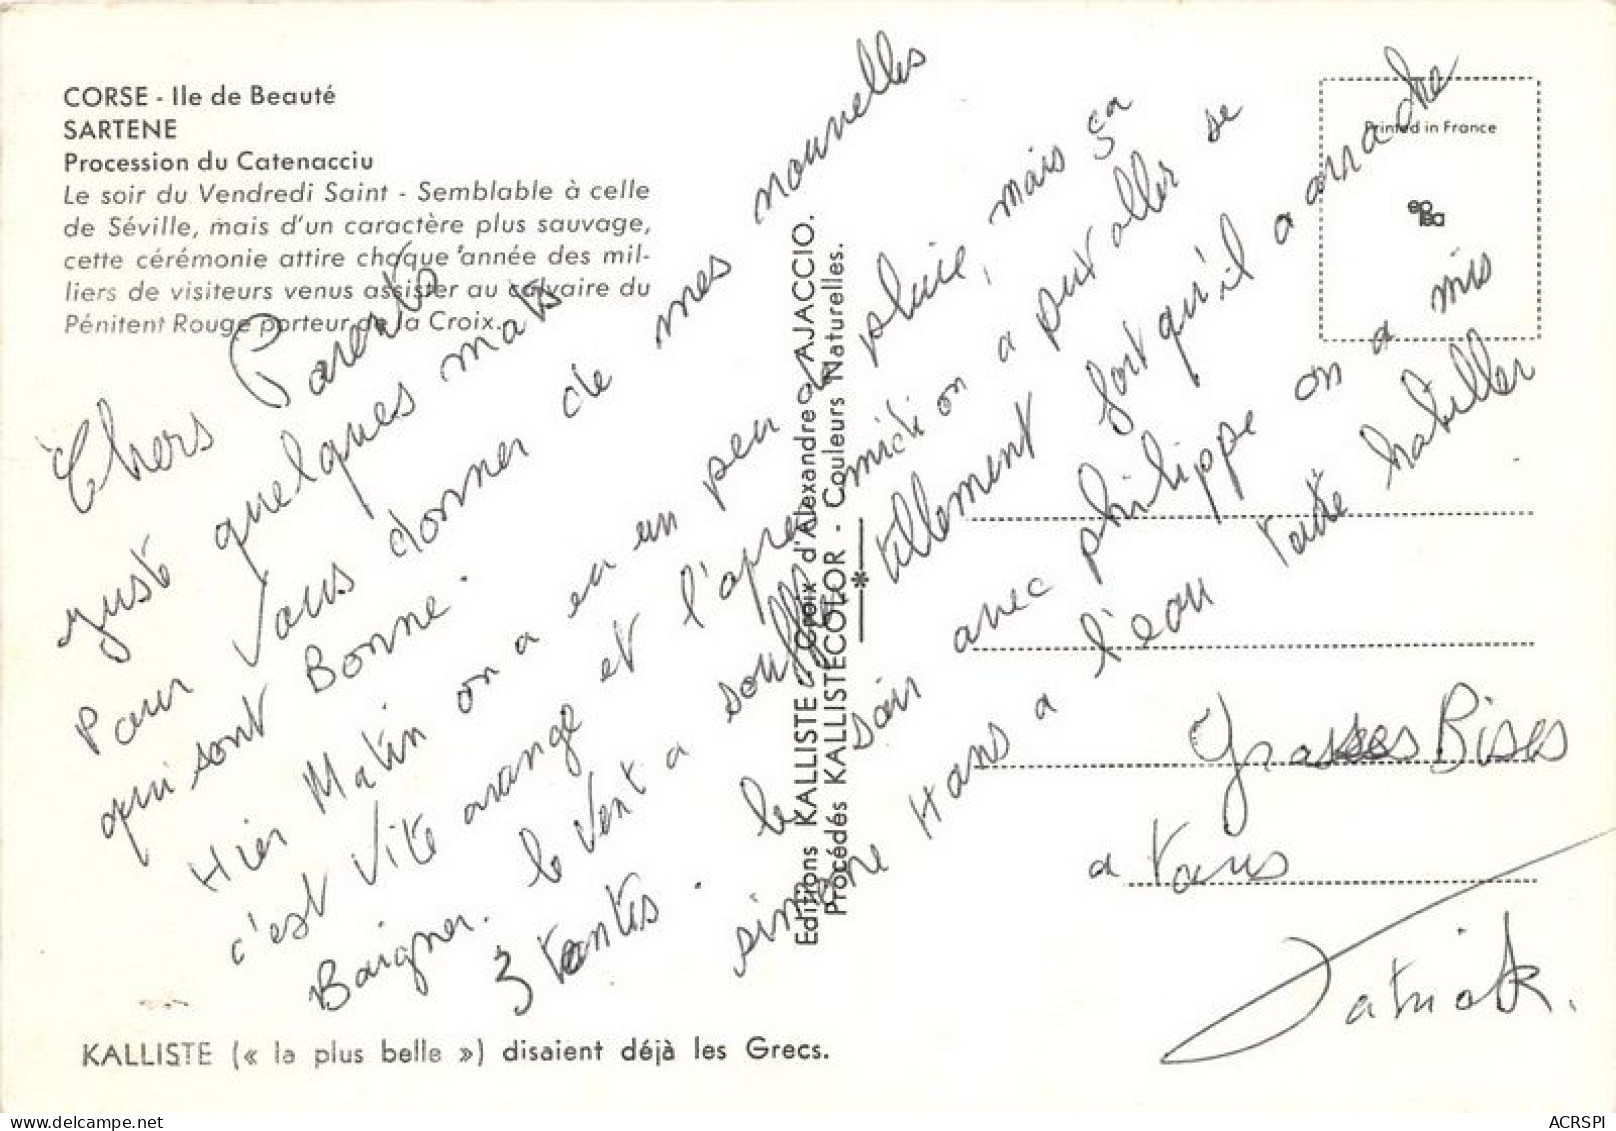 CORSE - Ile de Beauté
SARTENE
Procession du Catenacciu
Le soir du Vendredi Saint - Semblable à celle
de Séville, mais d'un caractère plus sauvage,
cette cérémonie attire chaque année des mil-
liers de visiteurs venus assister au calvaire du
Pénitent Rouge porteur de la Croix.
Printed in France
Chers Parents
juste quelques mots
pour vous donner de mes nouvelles
qui sont Bonne.
Hier Matin on a eu un peu de pluie, mais ça
c'est vite arangé et l'apres midi on a put aller se
Baigner. le vent a souffler tellement fort qu'il a arraché
3 tentes. le soir avec philippe on a mis
simone Hans a l'eau toute habiller
Grosses Bises
a tous
Patrick.
Editions KALLISTE, Croix d'Alexandre - AJACCIO.
Procédés KALLISTECOLOR - Couleurs Naturelles.
KALLISTE (« la plus belle ») disaient déjà les Grecs.
ACRSPI